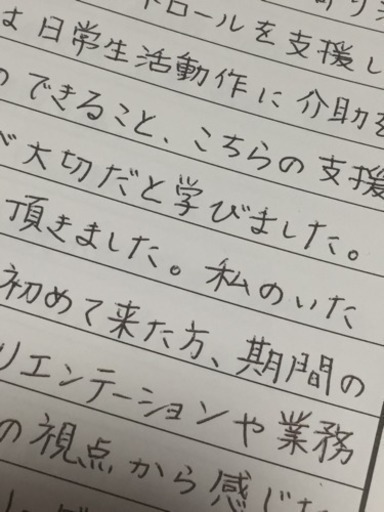 トロールを支援し
は日常生活動作に介助を
のできること、こちらの支援
が大切だと学びました。
頂きました。私のいた
初めて来た方、期間の
リエンテーションや業務
の視点から感じた